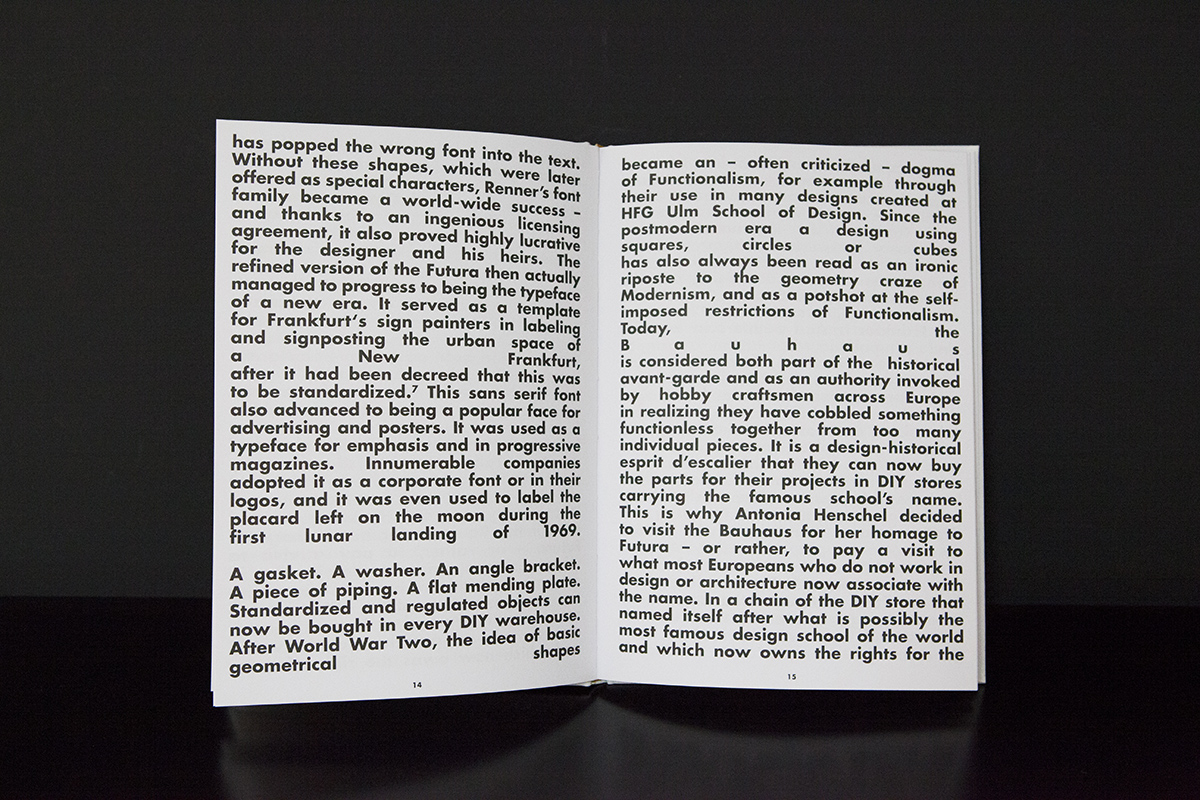 has popped the wrong font into the text.
Without these shapes, which were later
offered as special characters, Renner's font
family became a world-wide success –
and thanks to an ingenious licensing
agreement, it also proved highly lucrative
for the designer and his heirs. The
refined version of the Futura then actually
managed to progress to being the typeface
of a new era. It served as a template
for Frankfurt's sign painters in labeling
and signposting the urban space of
a New Frankfurt,
after it had been decreed that this was
to be standardized.⁷ This sans serif font
also advanced to being a popular face for
advertising and posters. It was used as a
typeface for emphasis and in progressive
magazines. Innumerable companies
adopted it as a corporate font or in their
logos, and it was even used to label the
placard left on the moon during the
first lunar landing of 1969.
A gasket. A washer. An angle bracket.
A piece of piping. A flat mending plate.
Standardized and regulated objects can
now be bought in every DIY warehouse.
After World War Two, the idea of basic
geometrical shapes
14
became an – often criticized – dogma
of Functionalism, for example through
their use in many designs created at
HFG Ulm School of Design. Since the
postmodern era a design using
squares, circles or cubes
has also always been read as an ironic
riposte to the geometry craze of
Modernism, and as a potshot at the self-
imposed restrictions of Functionalism.
Today, the
B a u h a u s
is considered both part of the historical
avant-garde and as an authority invoked
by hobby craftsmen across Europe
in realizing they have cobbled something
functionless together from too many
individual pieces. It is a design-historical
esprit d'escalier that they can now buy
the parts for their projects in DIY stores
carrying the famous school's name.
This is why Antonia Henschel decided
to visit the Bauhaus for her homage to
Futura – or rather, to pay a visit to
what most Europeans who do not work in
design or architecture now associate with
the name. In a chain of the DIY store that
named itself after what is possibly the
most famous design school of the world
and which now owns the rights for the
15